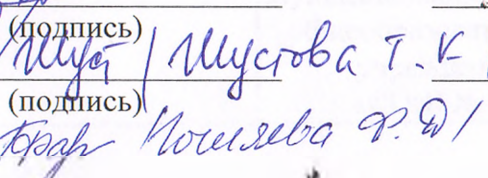 (подпись)
Шуст / Шустова Т.К
(подпись)
Пошляева Ф.Д /